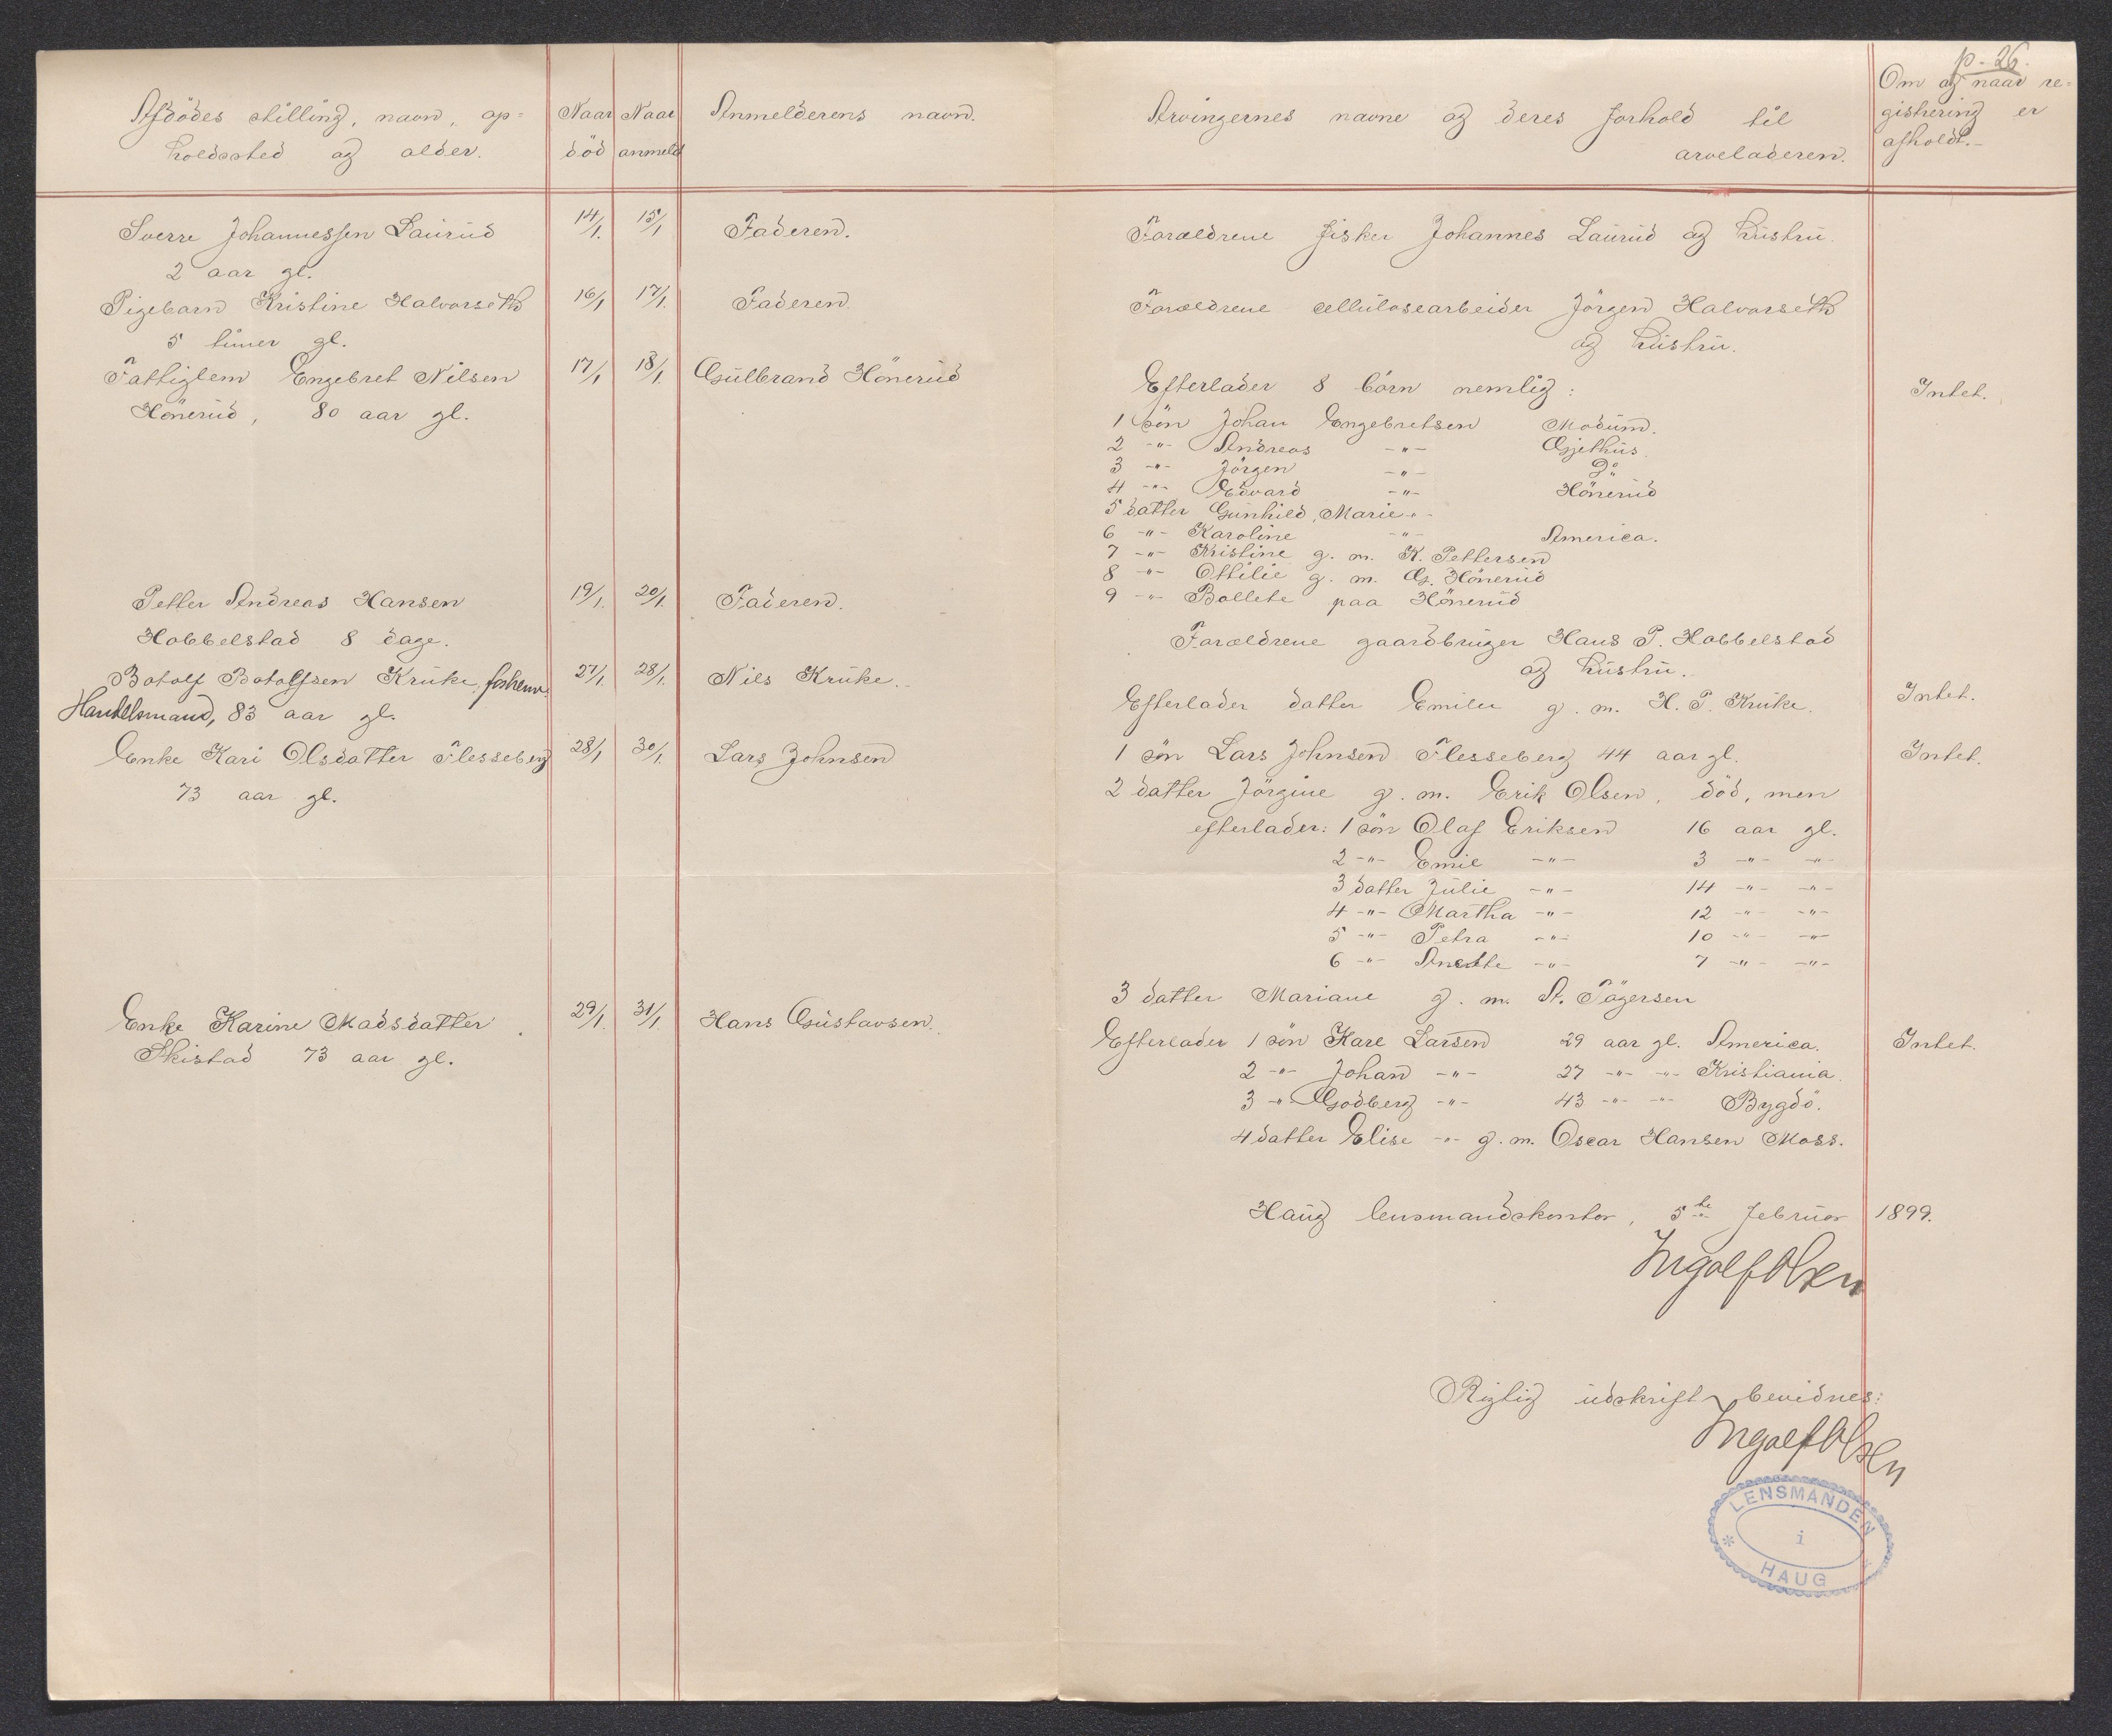 p. 26.
Afdödes stilling, navn, op=
holdssted og alder.
Naar
död
Naar
anmeldt
Anmelderens navn.
Arvingernes navne og deres forhold til
arveladeren.
Om og naar re=
gistrering er
afholdt.
Sverre Johannessen Laurud
2 aar gl.
14/1. 15/1
Faderen.
Forældrene fisker Johannes Laurud og hustru.
Pigebarn Kristine Halvorseth
5 timer gl.
16/1 17/1.
Faderen.
Forældrene cellulosearbeider Jörgen Halvorseth
og hustru.
Fattiglem Engebret Nilsen
Hönerud, 80 aar gl.
17/1 18/1.
Gulbrand Hönerud
Efterlader 8 börn nemlig:
Intet.
1 sön Johan Engebretsen Modum.
2 -"- Andreas -"- Gjethus.
3 -"- Jörgen -"- Do
4 -"- Edvard -"- Hönerud
5 datter Gunhild, Marie -"-
6 -"- Karoline -"- America.
7 -"- Kristine g. m. K. Pettersen
8 -"- Ottilie g. m. G. Hönerud
9 -"- Bollete paa Hönerud
Petter Andreas Hansen
Hobbelstad 8 dage.
19/1. 20/1.
Faderen.
Forældrene gaardbruger Hans P. Hobbelstad
og hustru.
Botolf Botolfsen Kruke, forhenv.
Handelsmand, 83 aar gl.
27/1. 28/1.
Nils Kruke.
Efterlader datter Emilie g. m. H. P. Kruke.
Intet.
Enke Kari Olsdatter Flesseberg
73 aar gl.
28/1 30/1.
Lars Johnsen
1 sön Lars Johnsen Flesseberg 44 aar gl.
Intet.
2 datter Jörgine g. m. Erik Olsen, död, men
efterlader: 1 sön Olaf Eriksen 16 aar gl.
2 -"- Emil -"- 3 -"- -"-
3 datter Julie -"- 14 -"- -"-
4 -"- Martha -"- 12 -"- -"-
5 -"- Petra -"- 10 -"- -"-
6 -"- Anette -"- 7 -"- -"-
3 datter Mariane g. m. A.
Enke Karine Madsdatter
Skistad 73 aar gl.
29/1. 31/1.
Hans Gustavsen.
Efterlader 1 sön Karl Larsen 29 aar gl. America.
Intet.
2 -"- Johan -"- 27 -"- -"- Kristiania.
3 -"- Godberg -"- 43 -"- -"- Bygdö.
4 datter Elise -"- g. m. Oscar Hansen Moss.
Haug lensmandskontor, 5te februar 1899.
Ingolf Olsen
Rigtig udskrift bevidnes:
Ingolf Olsen
LENSMANDEN
i
HAUG